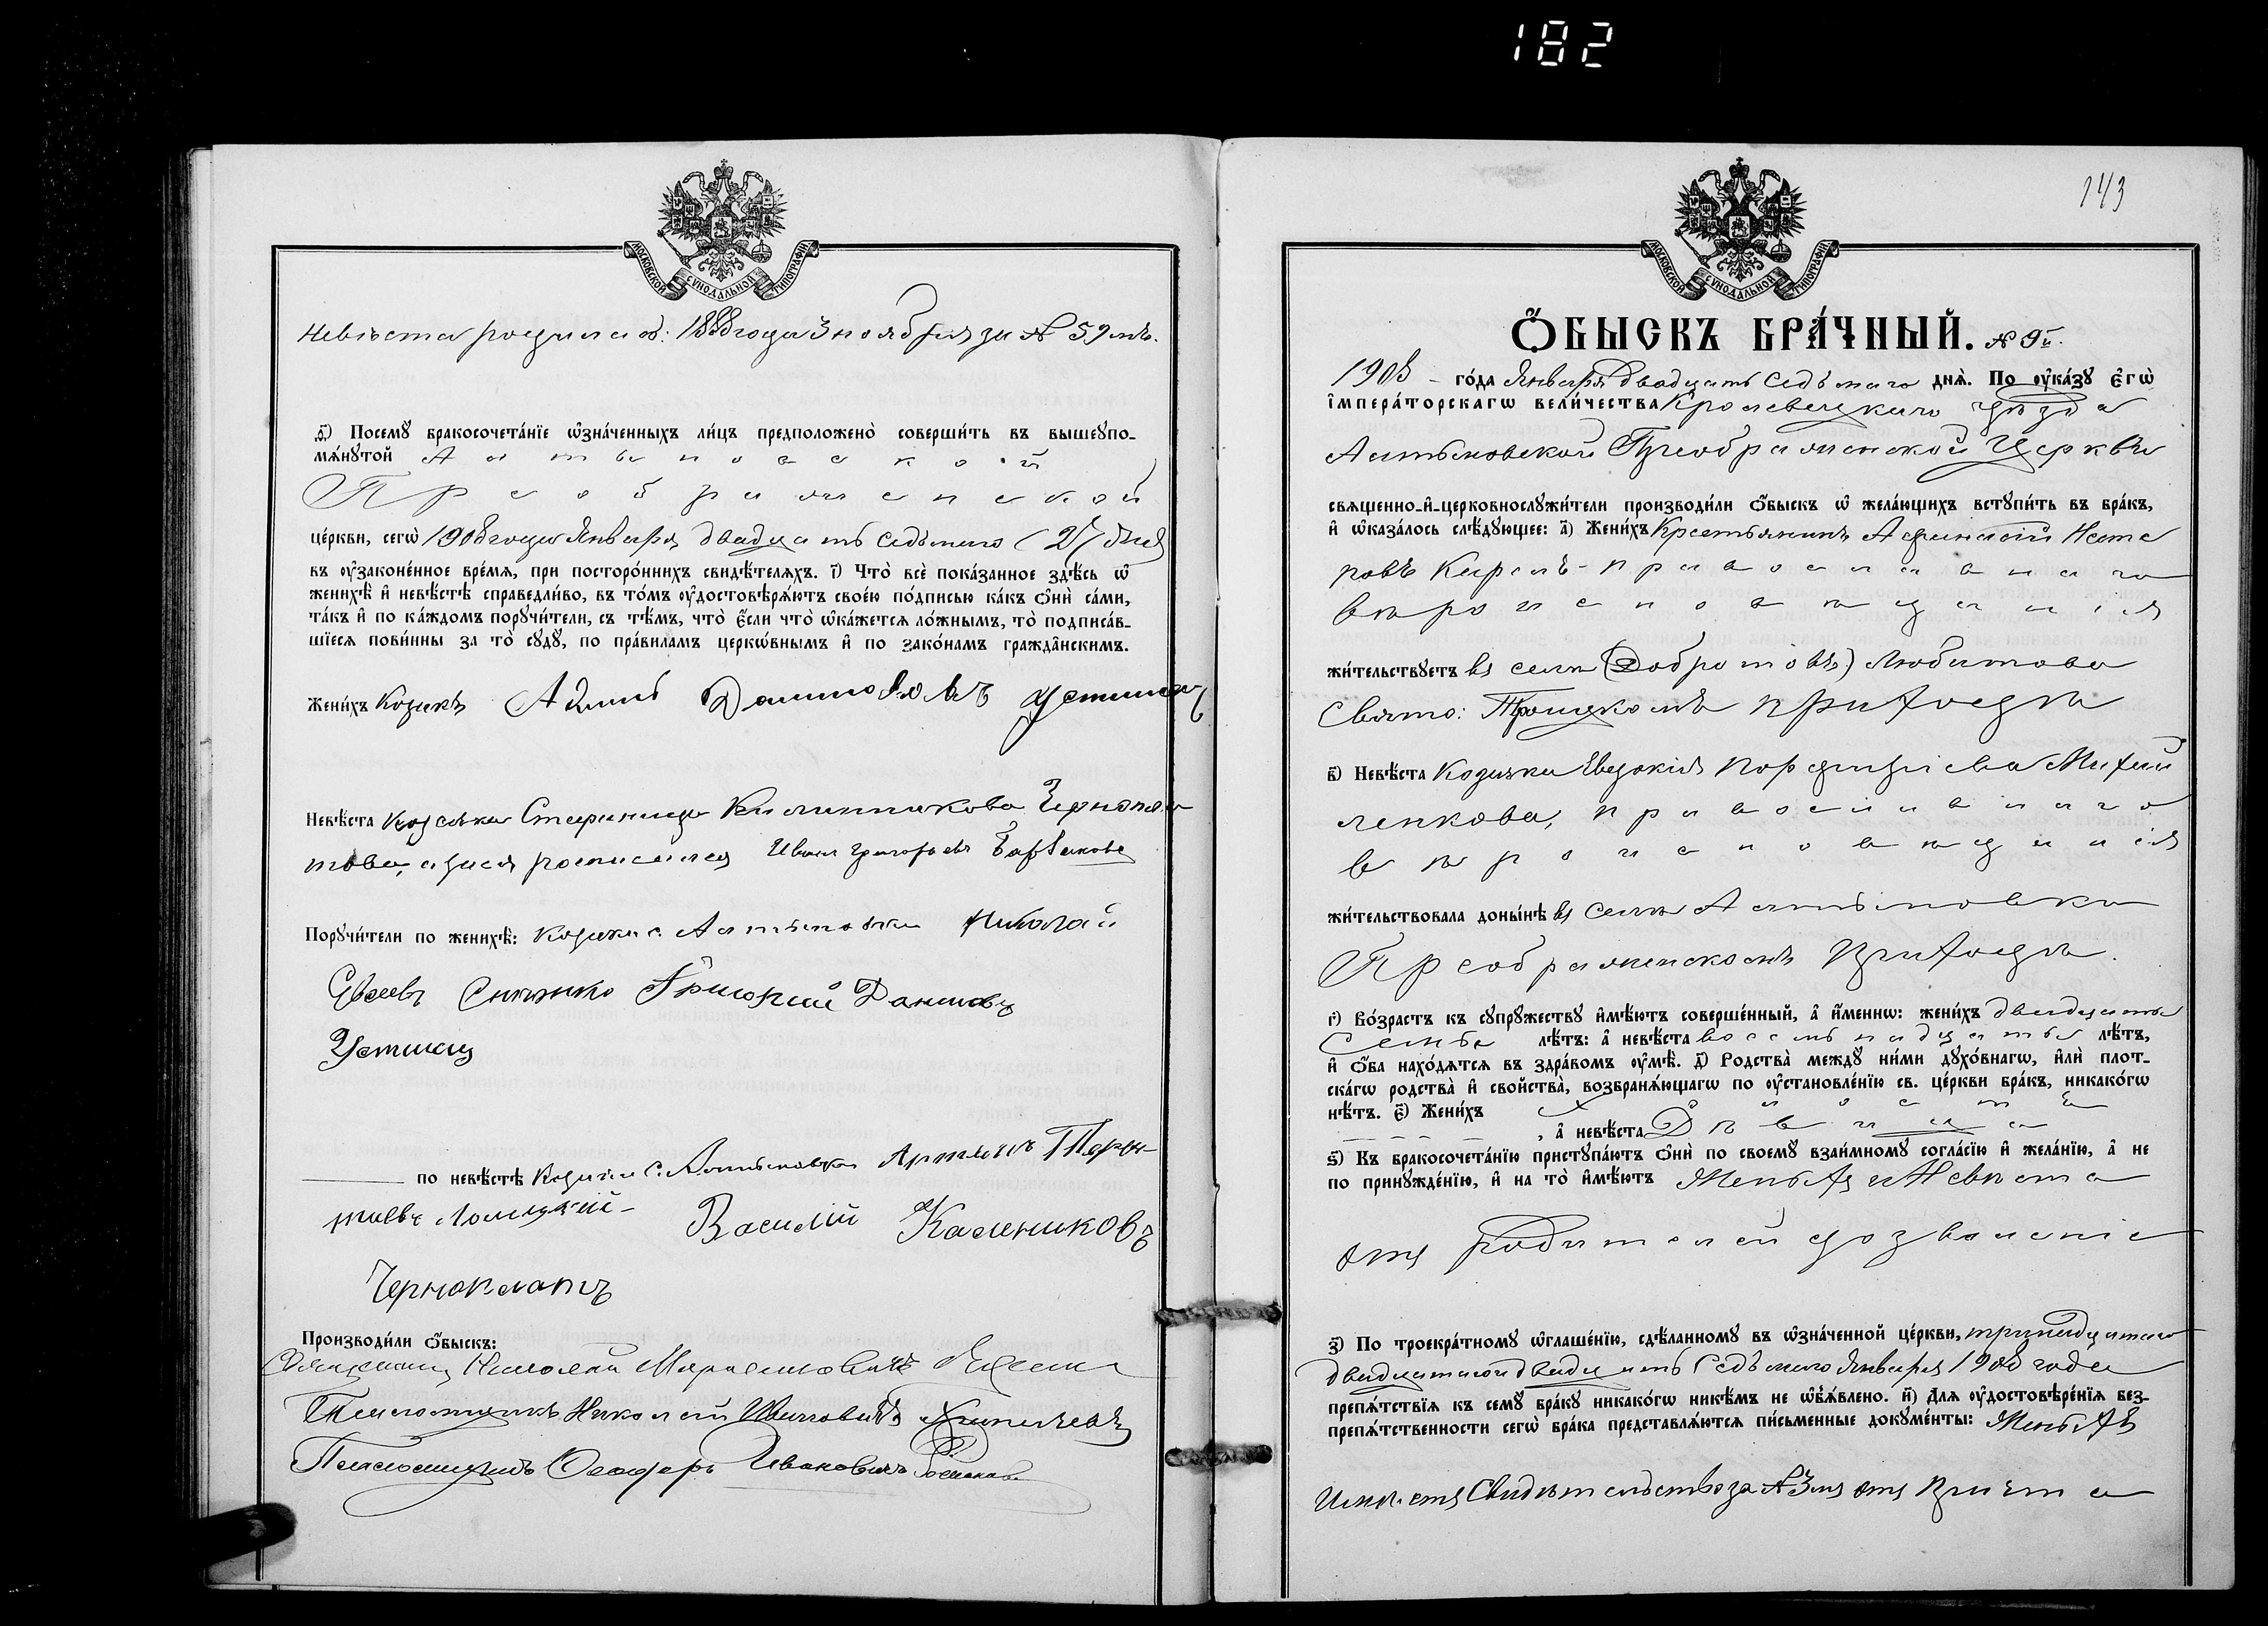 182
МОСКОВСКОЙ СѴНОДАЛЬНОЙ ТИПОГРАФІИ
Невѣста родилась: 1888 года 3 ноября за № 59мъ.
ѳ҃) Посемꙋ бракосочета́нїе ѡ҆зна́ченныхъ ли́цъ предположено̀ соверши́ть въ вышеꙋпо-
мѧ́нꙋтой Алтыновской
Преображенской
це́ркви, сегѡ̀ 1908 года Января двадцать седьмого (27) дня
въ ᲂу҆законе́нное вре́мѧ, при посторо́ннихъ свидѣ́телѧхъ. і҃) Что̀ всѐ пока́занное здѣ́сь ѡ҆
женихѣ̀ и҆ невѣ́стѣ справедли́во, въ то́мъ ᲂу҆достовѣрѧ́ютъ свое́ю по́дписью ка́къ ѻ҆нѝ са́ми,
та́къ и҆ по ка́ждомъ порꙋчи́тели, съ тѣ́мъ, что̀ є҆́сли что̀ ѡ҆ка́жетсѧ ло́жнымъ, то̀ подписа́в-
шїесѧ пови́нны за то̀ сꙋдꙋ̀, по пра́виламъ церкѡ́внымъ и҆ по зако́намъ гражда̂нскимъ.
Жени́хъ Козакъ Адамъ Даниловъ Устимец
Невѣ́ста козачка Стефанида Калинникова Чернокла
това, а за нея росписался Иванъ Григорьевъ
Порꙋчи́тели по женихѣ̀: козаки с. Алтыновки Николай
Евсеевъ Синяко Григорий Данилов
Устимец
по невѣ́стѣ козаки с. Алтыновки Артемъ
Василій Калениковъ
Производи́ли ѻ҆́быскъ:
Священникъ Николай
Псаломщикъ Николай Ивановичъ
Псаломщикъ Ѳеодоръ Ивановичъ
143
МОСКОВСКОЙ СѴНОДАЛЬНОЙ ТИПОГРАФІИ
Ѻ҆́БЫСКЪ БРА́ЧНЫЙ. № 9й.
1908 го́да Января двадцать седьмого днѧ̀. По ᲂу҆ка́зꙋ є҆гѡ̀
і҆мпера́торскагѡ вели́чества Кролевецкаго уѣзда
Алтыновской Преображенской Церкви
свѧщенно-и҆-церковнослꙋжи́тели производи́ли ѻ҆́быскъ ѡ҆ жела́ющихъ встꙋпи́ть въ бра́къ,
и҆ ѡ҆каза́лось слѣ́дꙋющее: а҃) Жени́хъ Крестьянинъ Афанасій Несте
ровъ православнаго
вѣроисповѣданія
жи́тельствꙋетъ въ селѣ (Добротовѣ) Любитова
Свято: Троицкомъ приходѣ
в҃) Невѣ́ста Козачка Евдокія Порфиріева Михай
ленкова, православнаго
вѣроисповѣданія
жи́тельствовала доны́нѣ въ селѣ Алтыновка
Преображенскомъ приходѣ.
г҃) Во́зрастъ къ сꙋпрꙋ́жествꙋ и҆мѣ́ютъ соверше́нный, а҆ и҆́меннѡ: жени́хъ двадцать
семь лѣ́тъ: а҆ невѣ́ста восемнадцать лѣ́тъ,
и҆ ѻ҆́ба нахо́дѧтсѧ въ здра́вомъ ᲂу҆мѣ̀. д҃) Родства̀ междꙋ̀ ни́ми дꙋхо́внагѡ, и҆лѝ плот-
ска́гѡ родства̀ и҆ свойства̀, возбранѧ́ющагѡ по ᲂу҆становле́нїю св. це́ркви бра́къ, никако́гѡ
нѣ́тъ. є҃) Жени́хъ Холостъ
, а҆ невѣ́ста Дѣвица
ѕ҃) Къ бракосочета́нїю пристꙋпа́ютъ ѻ҆нѝ по своемꙋ̀ взаи́мномꙋ согла́сїю и҆ жела́нїю, а҆ не
по принꙋжде́нїю, и҆ на то̀ и҆мѣ́ютъ Женихъ и Невѣста
отъ родителей дозволеніе
з҃) По троекра́тномꙋ ѡ҆глаше́нїю, сдѣ́ланномꙋ въ ѡ҆зна́ченной це́ркви, тринадцатаго
двадцатаго и двадцать седьмого Января 1908 года
препѧ́тствїѧ къ семꙋ̀ бра́кꙋ никако́гѡ никѣ́мъ не ѡ҆б̾ѧ́влено. и҃) Длѧ ᲂу҆достовѣре́нїѧ без-
препѧ́тственности сегѡ̀ бра́ка представлѧ́ютсѧ пи́сьменные докꙋме́нты: Женихъ
имѣетъ Свидѣтельство за №3мъ отъ причта